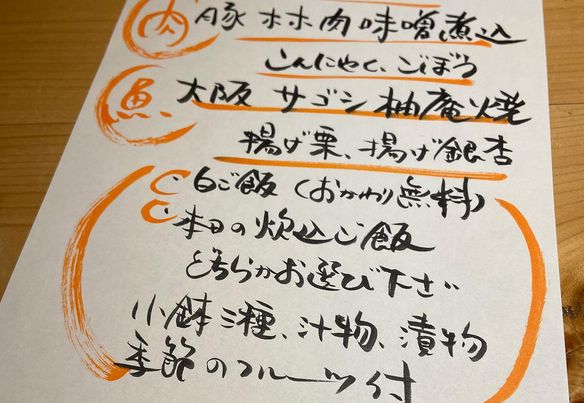 肉 豚ホホ肉味噌煮込
こんにゃく、ごぼう
魚 大阪 サゴシ柚庵焼
揚げ栗、揚げ銀杏
・白ご飯（おかわり無料）
・本日の炊込ご飯
どちらかお選び下さい
小鉢三種、汁物、漬物
季節のフルーツ付